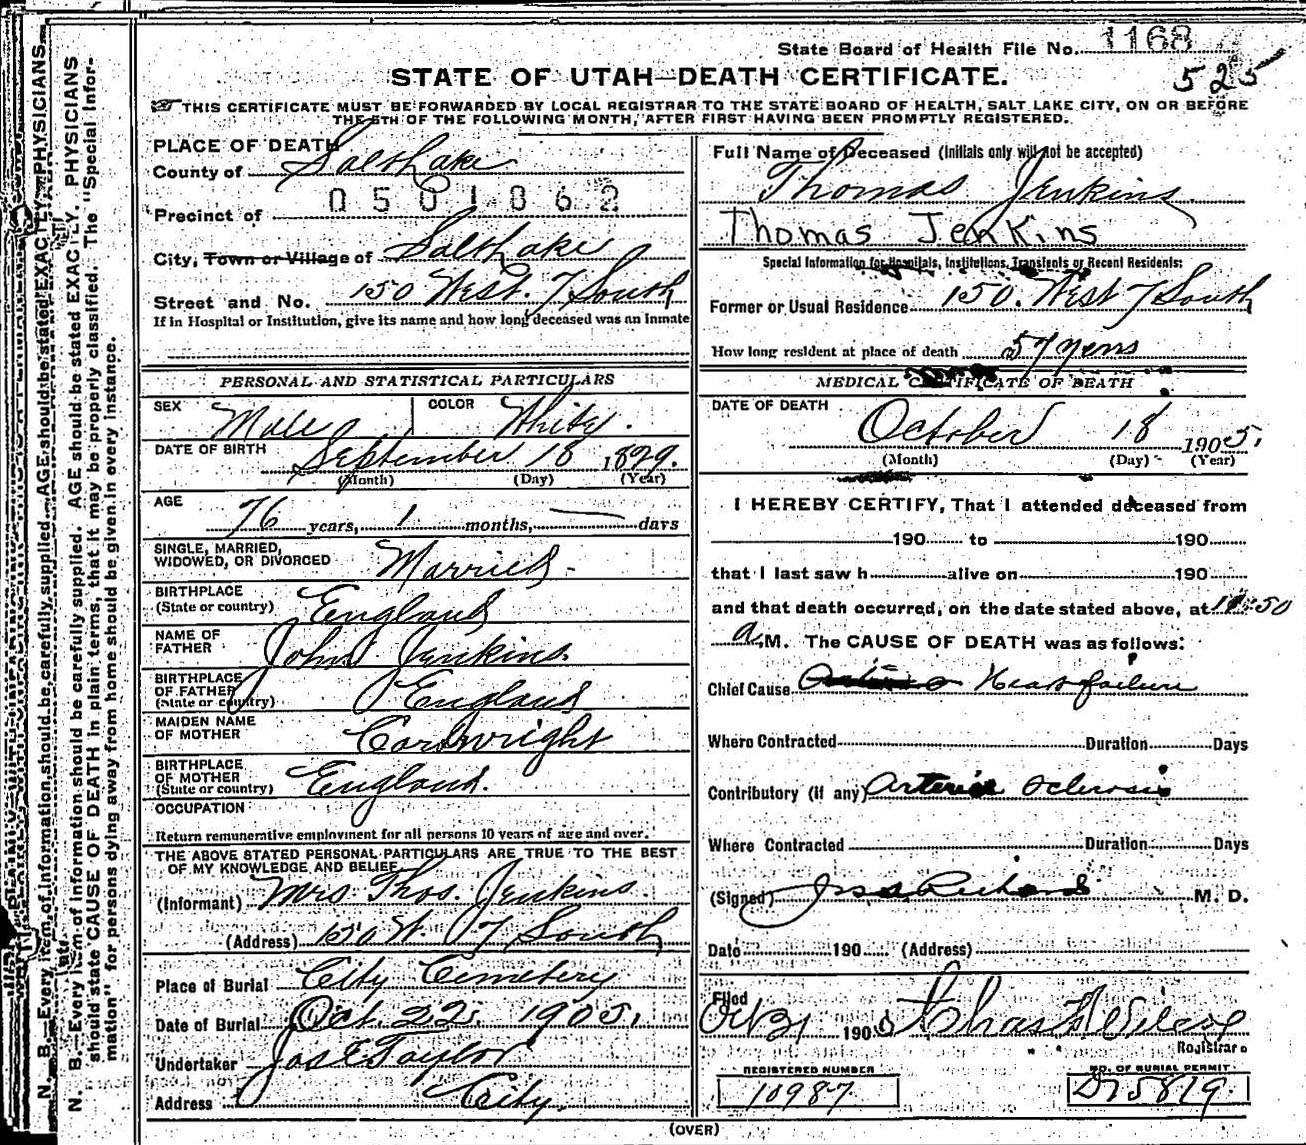 State Board of Health File No. 1168
525
STATE OF UTAH—DEATH CERTIFICATE.
THIS CERTIFICATE MUST BE FORWARDED BY LOCAL REGISTRAR TO THE STATE BOARD OF HEALTH, SALT LAKE CITY, ON OR BEFORE
THE 5TH OF THE FOLLOWING MONTH, AFTER FIRST HAVING BEEN PROMPTLY REGISTERED.
PLACE OF DEATH
County of Salt Lake
0501862
Precinct of
City, Town or Village of Salt Lake
Street and No. 150 West. 7 South
If in Hospital or Institution, give its name and how long deceased was an inmate
PERSONAL AND STATISTICAL PARTICULARS
SEX Male COLOR White.
DATE OF BIRTH September 18 1829.
(Month) (Day) (Year)
AGE 76 years, 1 months, — days
SINGLE, MARRIED,
WIDOWED, OR DIVORCED Married
BIRTHPLACE
(State or country) England
NAME OF
FATHER John Jenkins.
BIRTHPLACE
OF FATHER
(State or country) England
MAIDEN NAME
OF MOTHER Cartwright
BIRTHPLACE
OF MOTHER
(State or country) England.
OCCUPATION
Return remunerative employment for all persons 10 years of age and over.
THE ABOVE STATED PERSONAL PARTICULARS ARE TRUE TO THE BEST
OF MY KNOWLEDGE AND BELIEF
(Informant) Mrs Thos. Jenkins.
(Address) 150 W. 7 South
Place of Burial City Cemetery
Date of Burial Oct. 22. 1905.
Undertaker Jos E Taylor
Address City.
Full Name of Deceased (Initials only will not be accepted)
Thomas Jenkins.
Thomas Jenkins
Special Information for Hospitals, Institutions, Transients or Recent Residents:
Former or Usual Residence 150. West 7 South
How long resident at place of death 57 years
MEDICAL CERTIFICATE OF DEATH
DATE OF DEATH October 18 1905.
(Month) (Day) (Year)
I HEREBY CERTIFY, That I attended deceased from
190 to 190
that I last saw h alive on 190
and that death occurred, on the date stated above, at 50
a M. The CAUSE OF DEATH was as follows:
Chief Cause Heart failure
Where Contracted Duration Days
Contributory (if any) Arterio Sclerosis
Where Contracted Duration Days
(Signed) Richards M. D.
Date 190 (Address)
Filed Oct 21 1905 Chas Wilcox
Registrar
REGISTERED NUMBER
10987
NO. OF BURIAL PERMIT
D 15819
(OVER)
N. B.—Every item of information should be carefully supplied. AGE should be stated EXACTLY. PHYSICIANS
N. B.—Every item of information should be carefully supplied. AGE should be stated EXACTLY. PHYSICIANS
should state CAUSE OF DEATH in plain terms, that it may be properly classified. The "Special Infor-
mation" for persons dying away from home should be given in every instance.